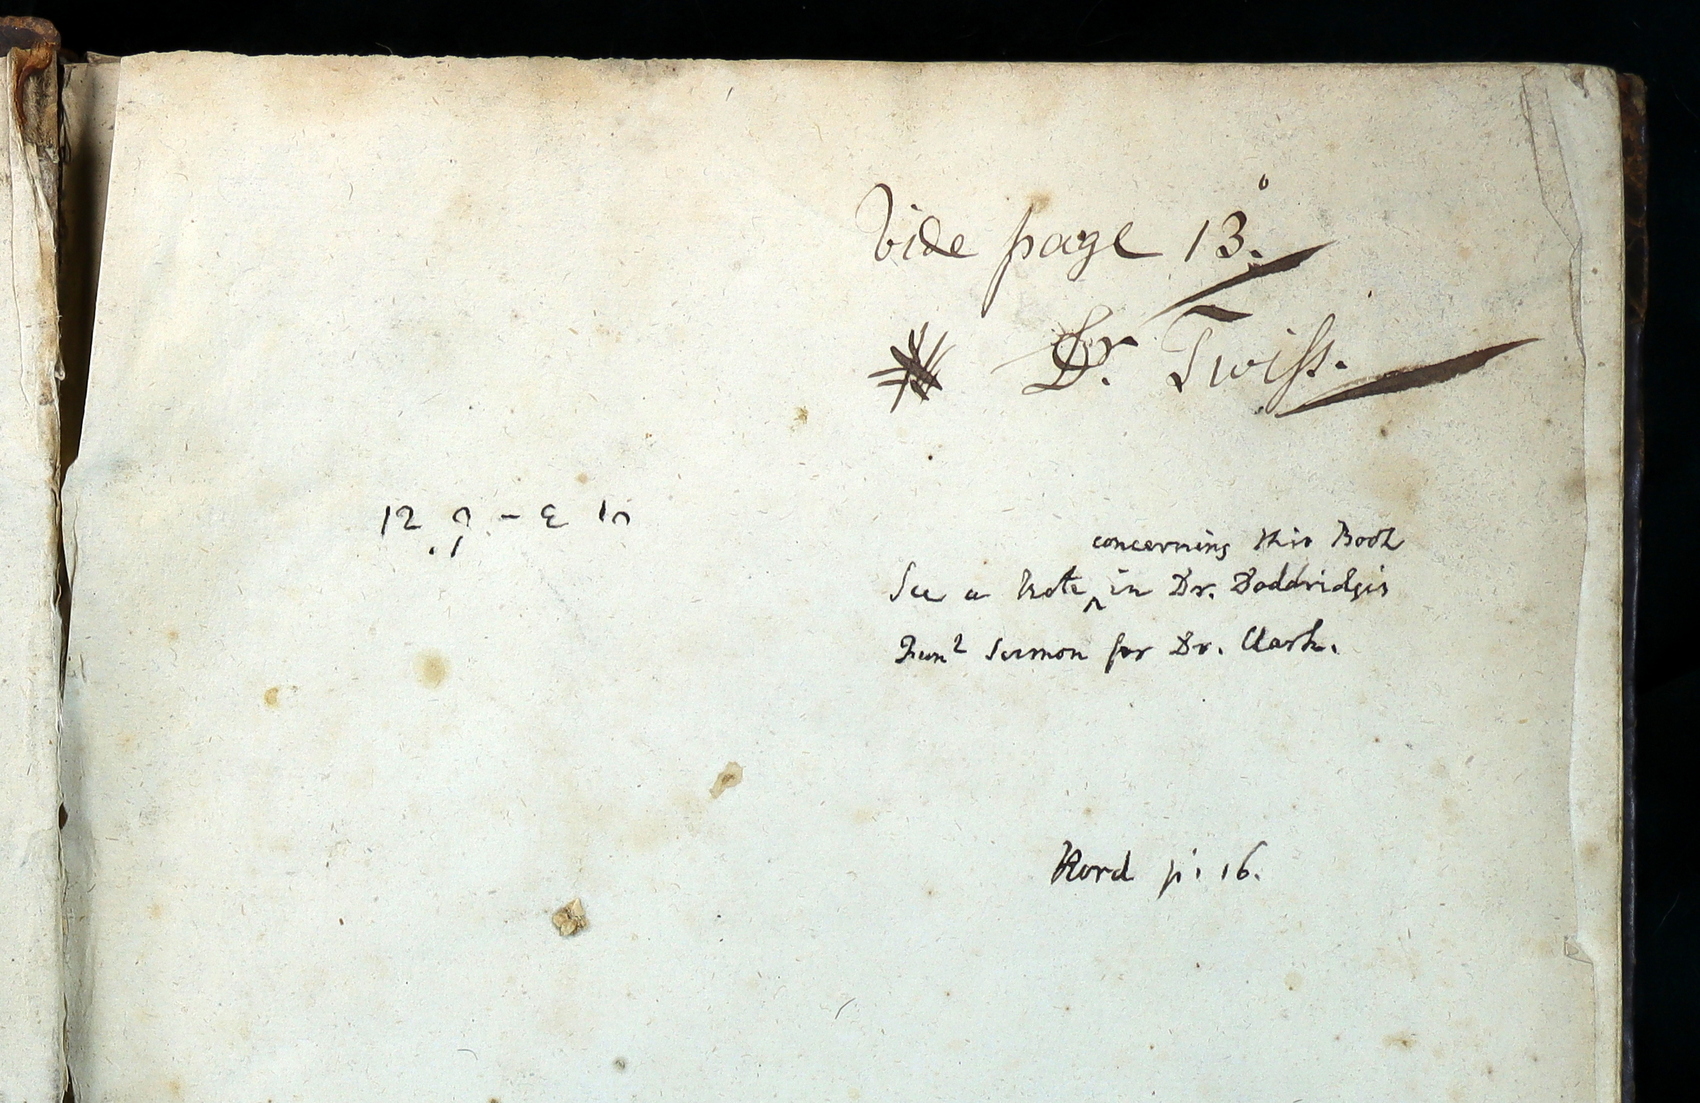 Vide page 13.
* Dr. Twiss.
concerning this Book
See a Note ^ in Dr. Doddridges
Funl Sermon for Dr. Clark.
Hord p: 16.